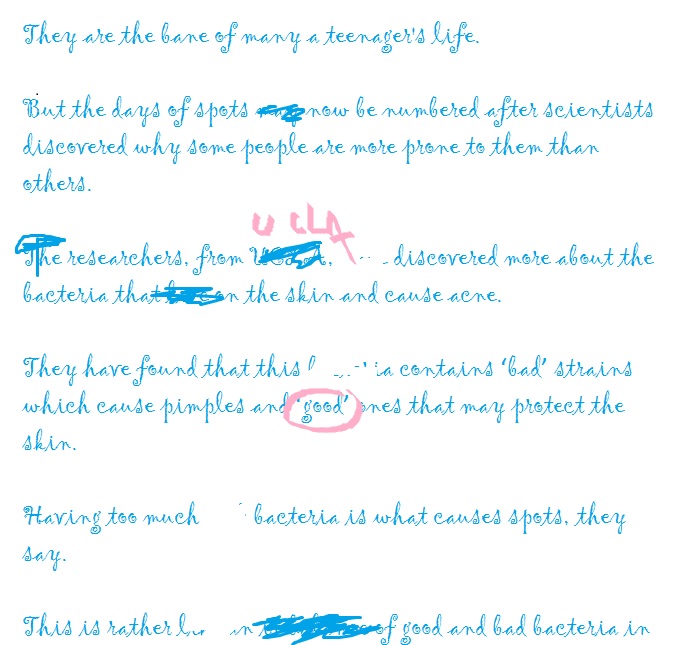 They are the bane of many a teenager's life.
But the days of spots now be numbered after scientists
discovered why some people are more prone to them than
others.
UCLA
The researchers, from discovered more about the
bacteria that on the skin and cause acne.
They have found that this contains 'bad' strains
which cause pimples and 'good' ones that may protect the
skin.
Having too much bacteria is what causes spots, they
say.
This is rather in of good and bad bacteria in